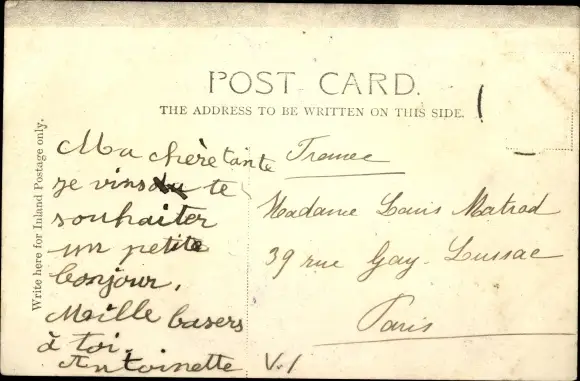 POST CARD.
THE ADDRESS TO BE WRITTEN ON THIS SIDE.
Write here for Inland Postage only.
Ma chère tante
je vins te
souhaiter
un petite
bonjour.
Meille basers
à toi.
Antoinette
France
Madame Louis Matrod
39 rue Gay-Lussac
Paris
V.1